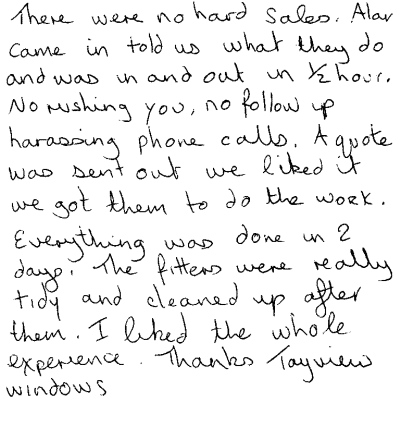 There were no hard sales. Alan
came in told us what they do
and was in and out in ½ hour.
No rushing you, no follow up
harassing phone calls. A quote
was sent out we liked it
we got them to do the work.
Everything was done in 2
days. The fitters were really
tidy and cleaned up after
them. I liked the whole
experience. Thanks Tayview
windows